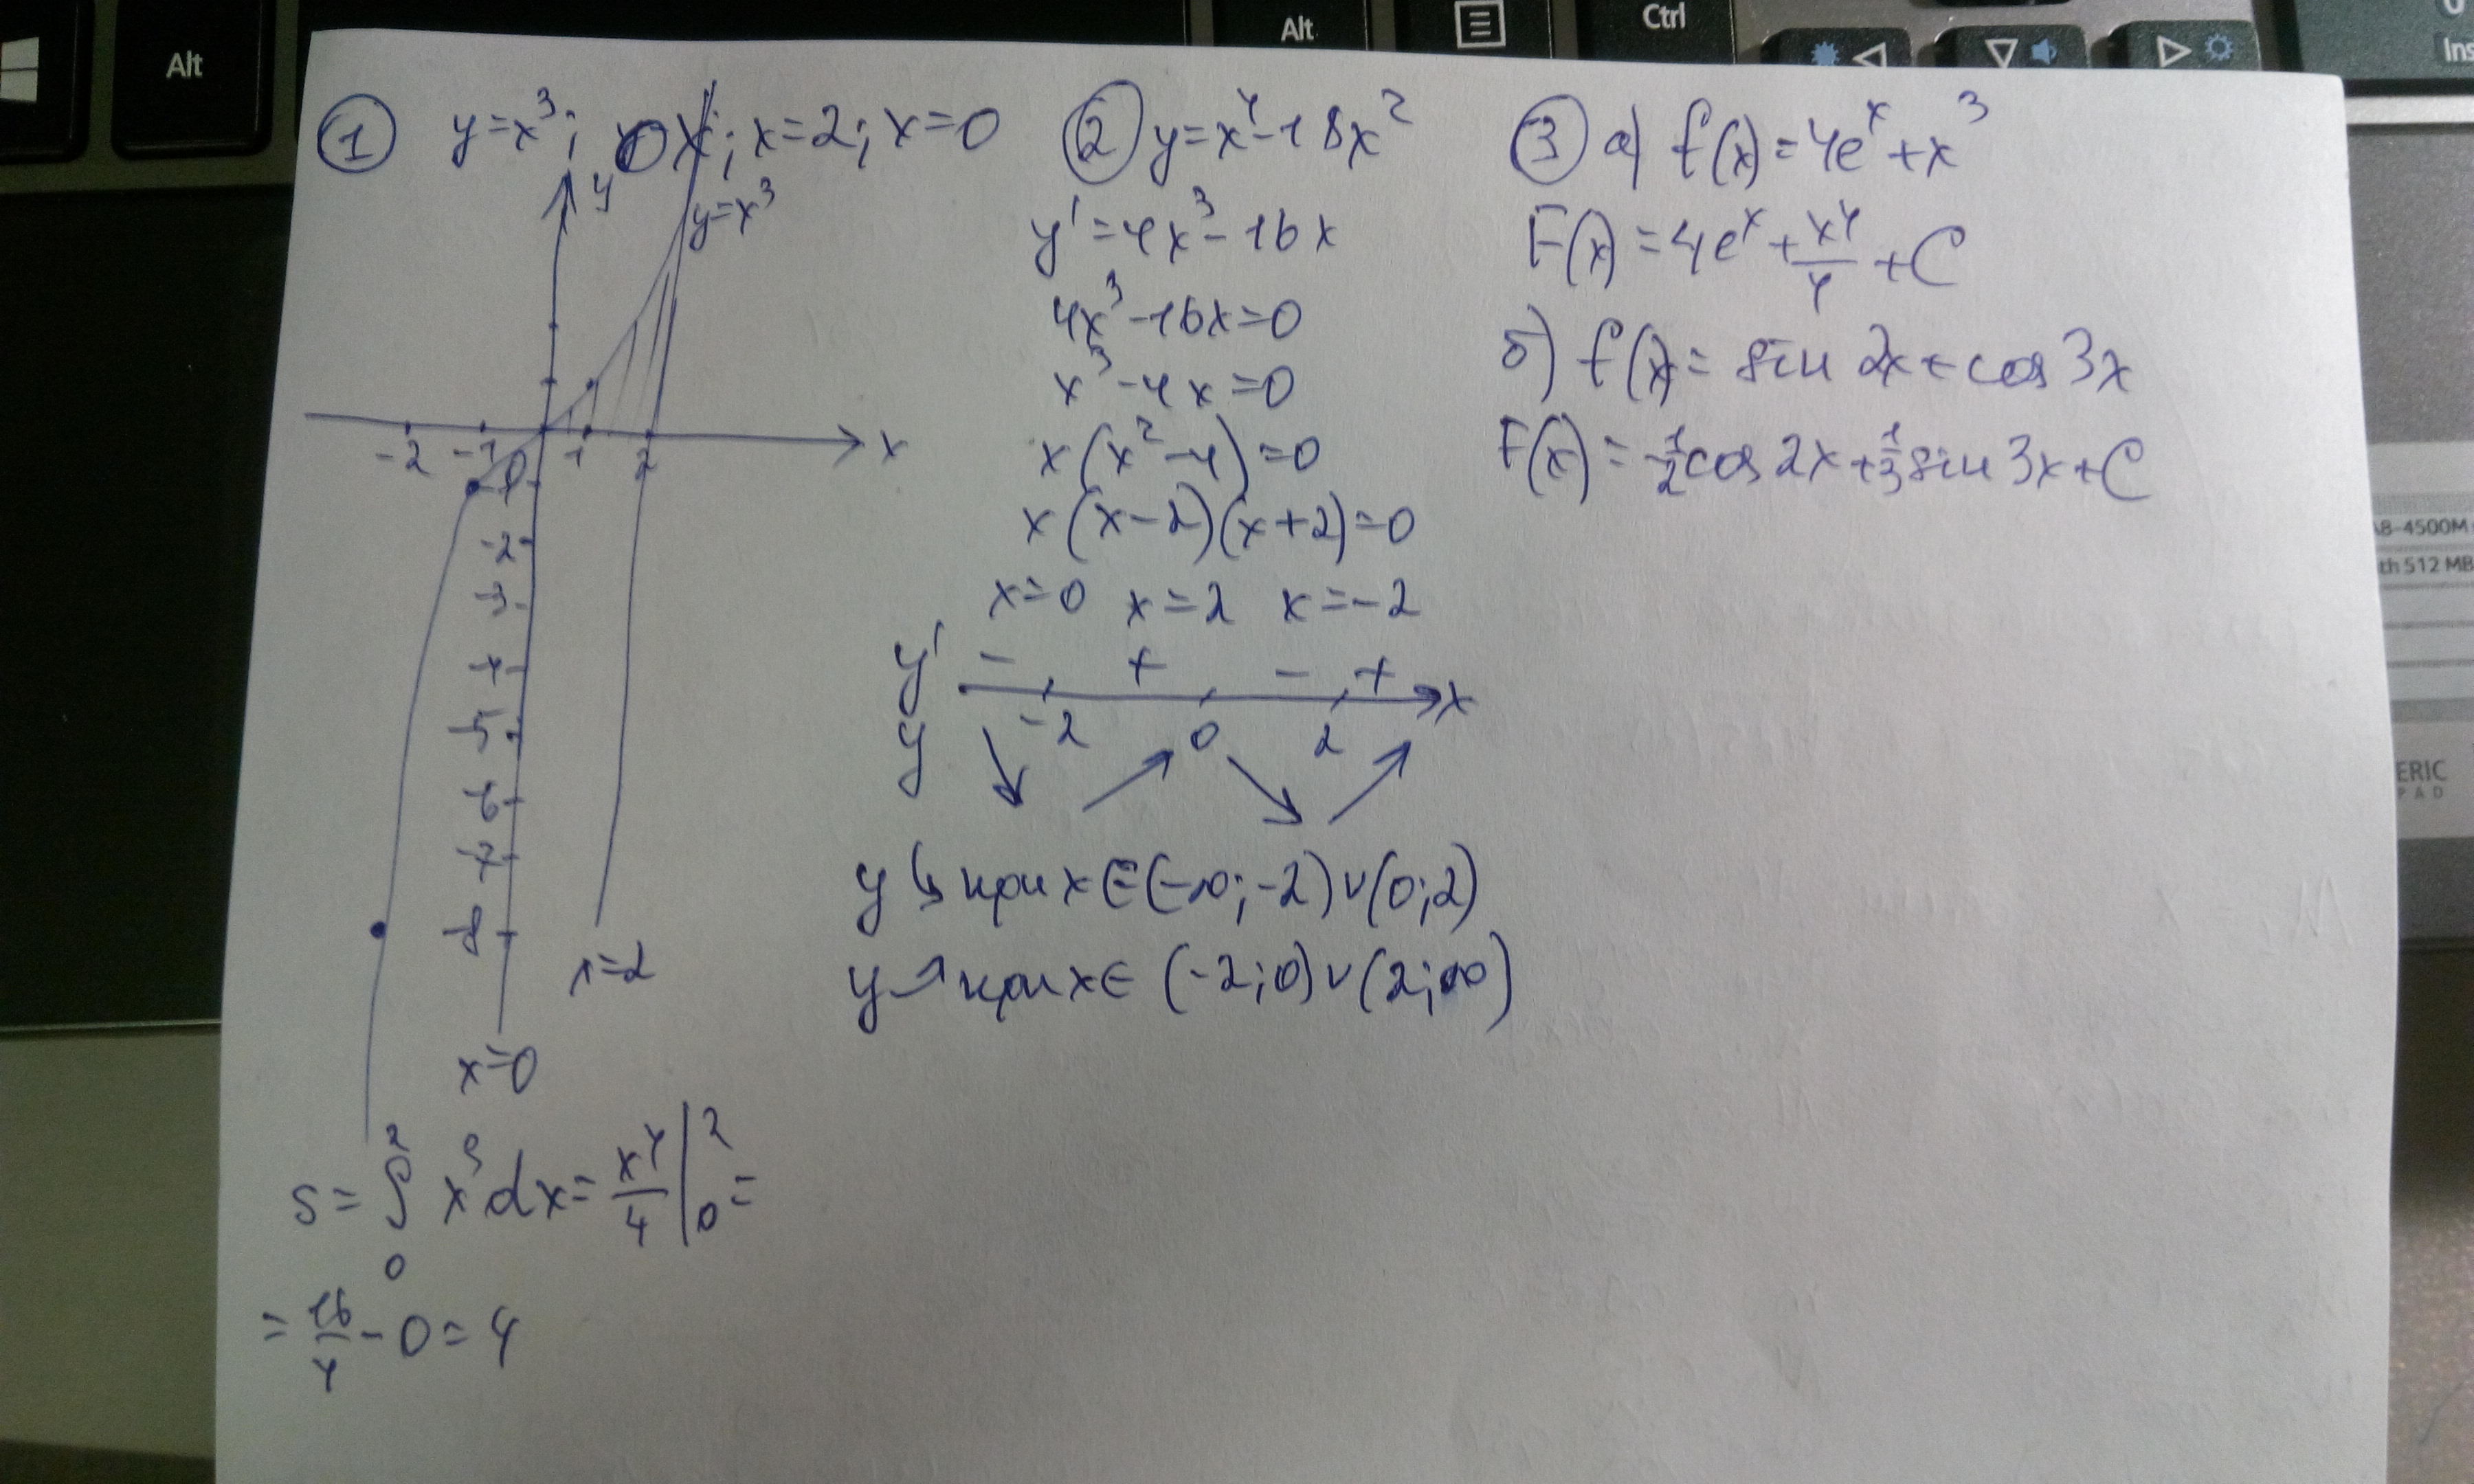 Alt
Alt
Ctrl
Ins
① y=x³; 0x; x=2; x=0
y
y=x³
x
-2 -1 0 1 2
-1
-2
-3
-4
-5
-6
-7
-8
x=2
x=0
S = ∫₀² x³dx = x⁴/4 |₀² =
= 16/4 - 0 = 4
② y=x⁴-18x²
y'=4x³-16x
4x³-16x=0
x³-4x=0
x(x²-4)=0
x(x-2)(x+2)=0
x=0 x=2 x=-2
y' - + - + x
-2 0 2
y ↘ ↗ ↘ ↗
y ↘ при x∈(-∞;-2)∨(0;2)
y ↗ при x∈ (-2;0)∨(2;∞)
③ а) f(x)=4eˣ+x³
F(x)=4eˣ+x⁴/4+C
б) f(x)= sin 2x+cos 3x
F(x)=-1/2cos 2x+1/3sin 3x+C
A8-4500M
th 512 MB
ERIC
PAD